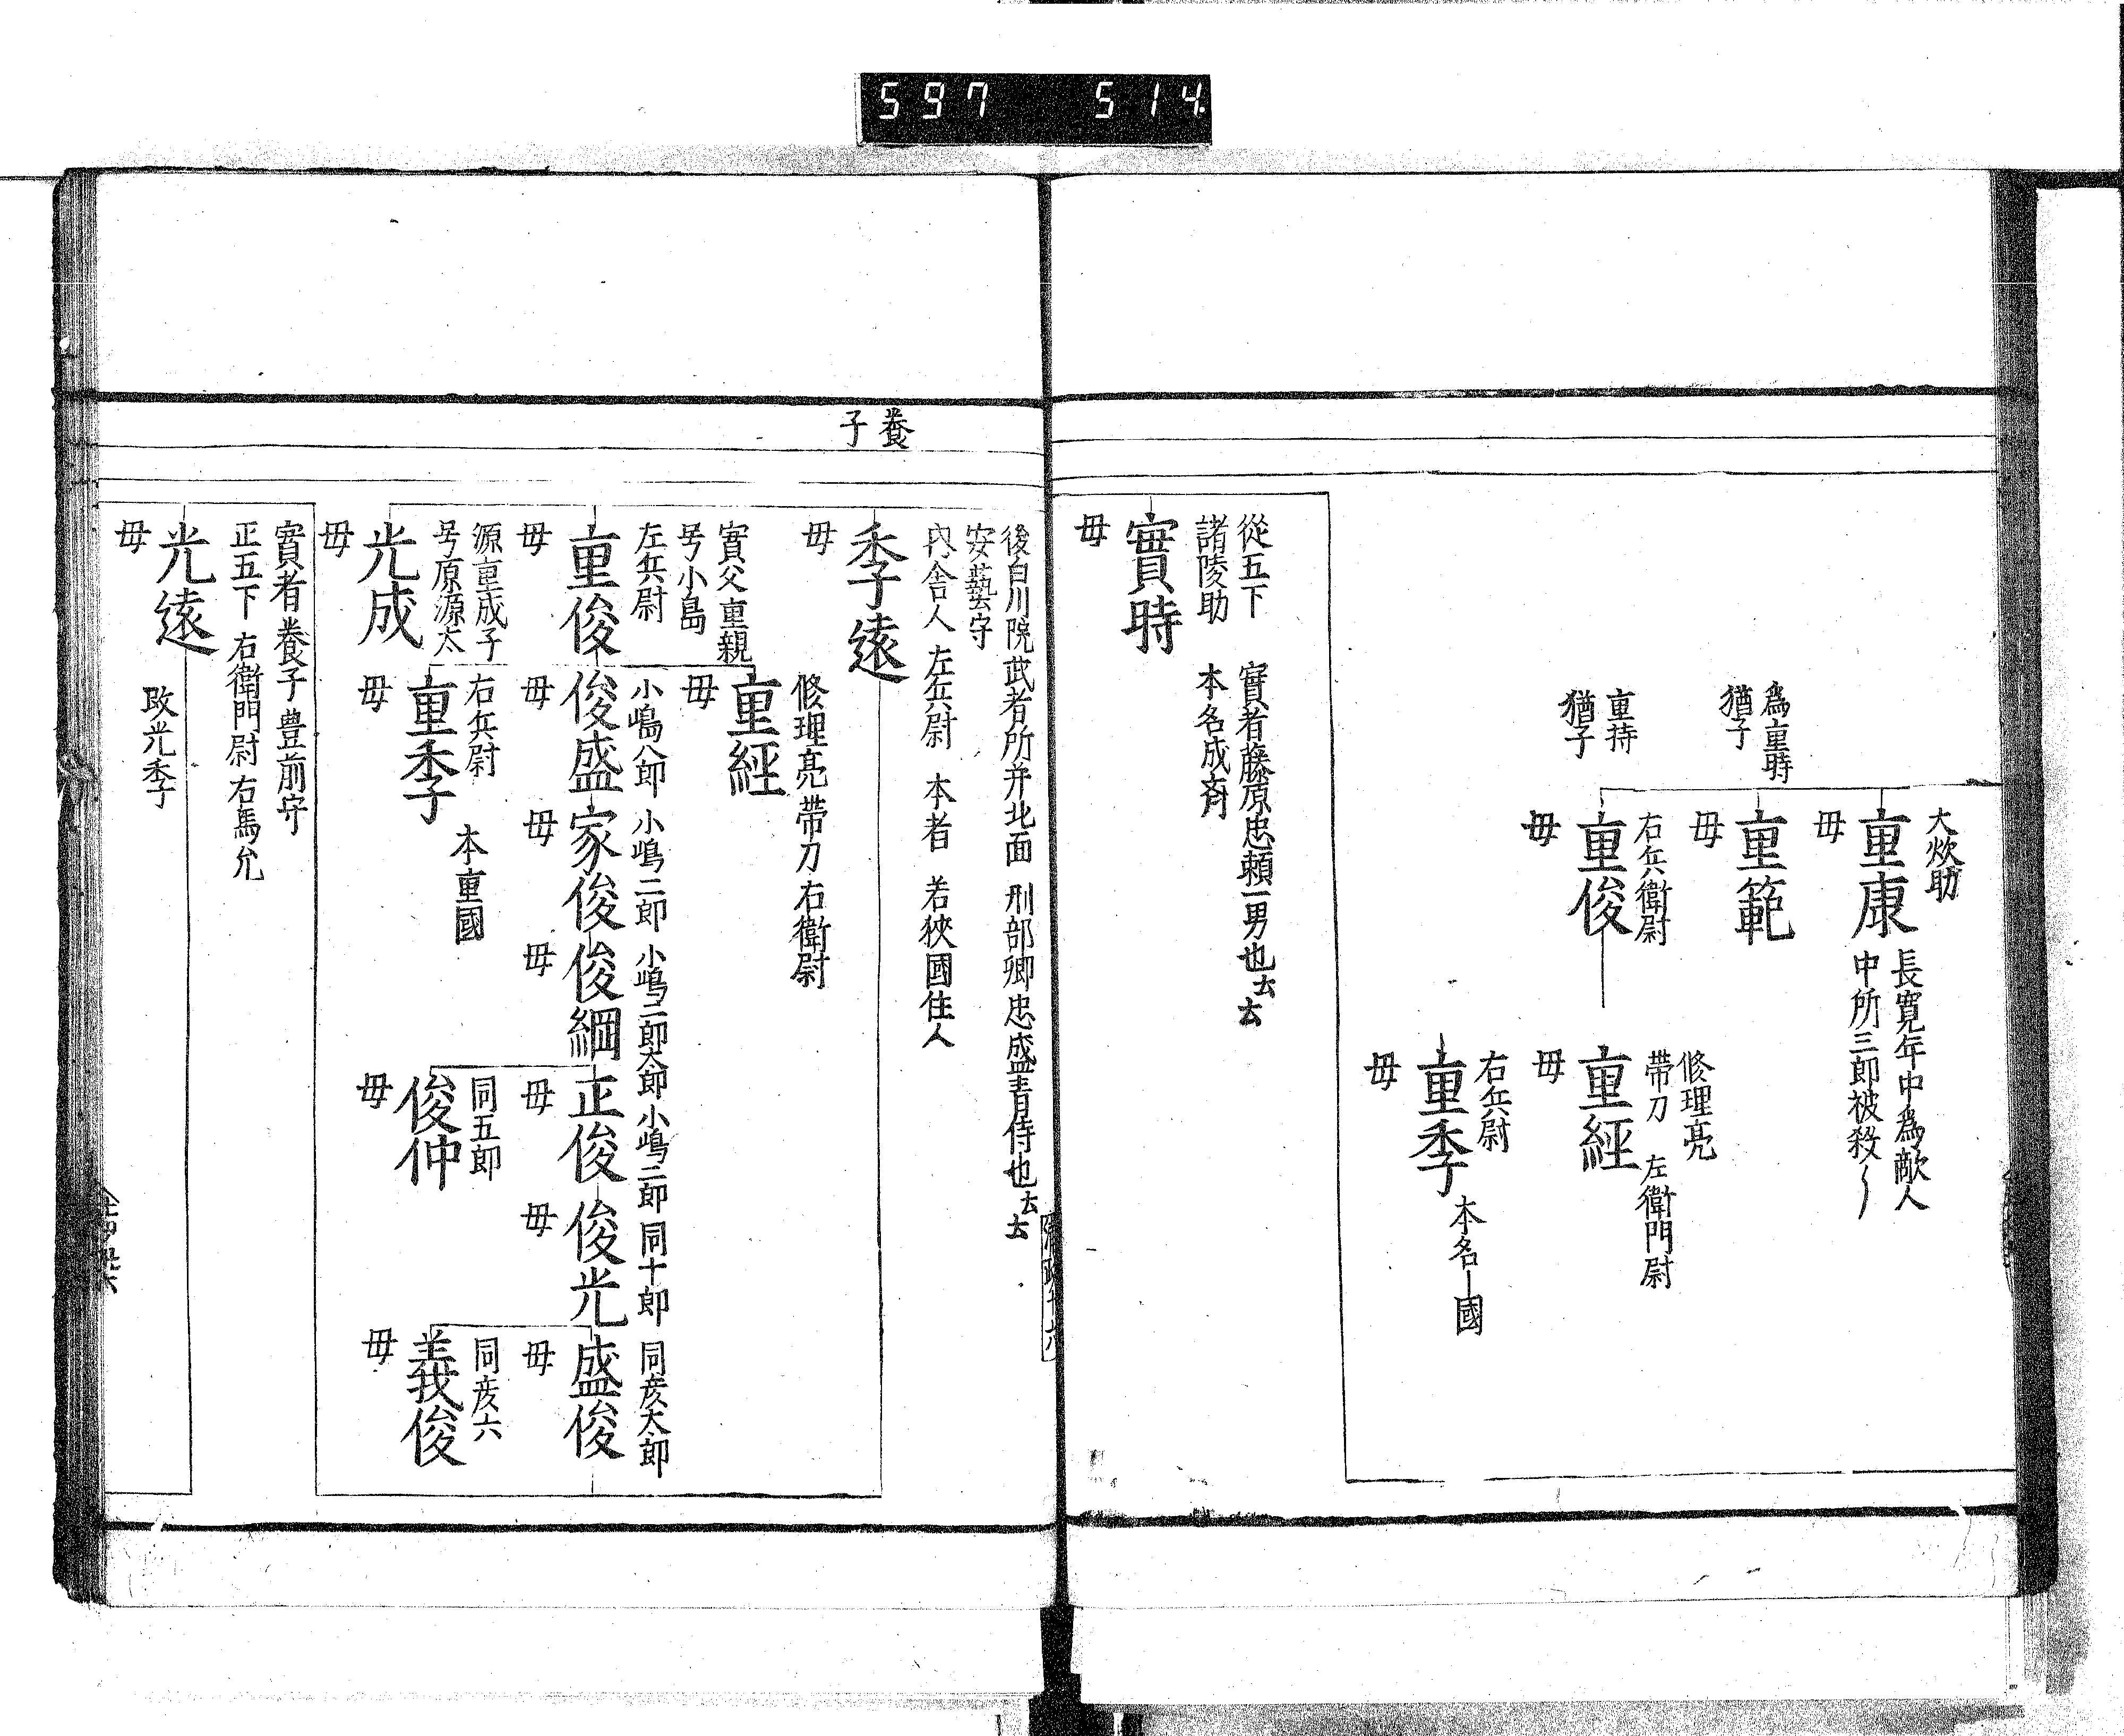 597 514
大炊助
重康
長寛年中為敵人
中所三郎被殺〻
母
為重時
猶子
重範
母
重持
猶子
右兵衛尉
重俊
母
修理亮
帯刀 左衛門尉
重經
母
右兵尉
重季
本名―國
母
從五下 實者藤原忠頼一男也云云
諸陵助 本名成斉
實時
母
養
子
後白川院武者所并北面 刑部卿忠盛青侍也云云
安藝守
内舎人 左兵尉 本者 若狹國住人
季遠
母
修理亮 帯刀 右衛尉
重經
母
實父重親
号小島
左兵尉
重俊
母
小嶋八郎
俊盛
母
小嶋二郎
家俊
母
小嶋二郎太郎
俊綱
母
小嶋二郎
正俊
母
同十郎
俊光
母
同彦太郎
盛俊
母
源重成子
号原源太
光成
母
右兵尉
重季
本重國
母
同五郎
俊仲
母
同彦六
義俊
母
實者養子豊前守
正五下 右衛門尉 右馬允
光遠
改光季
母